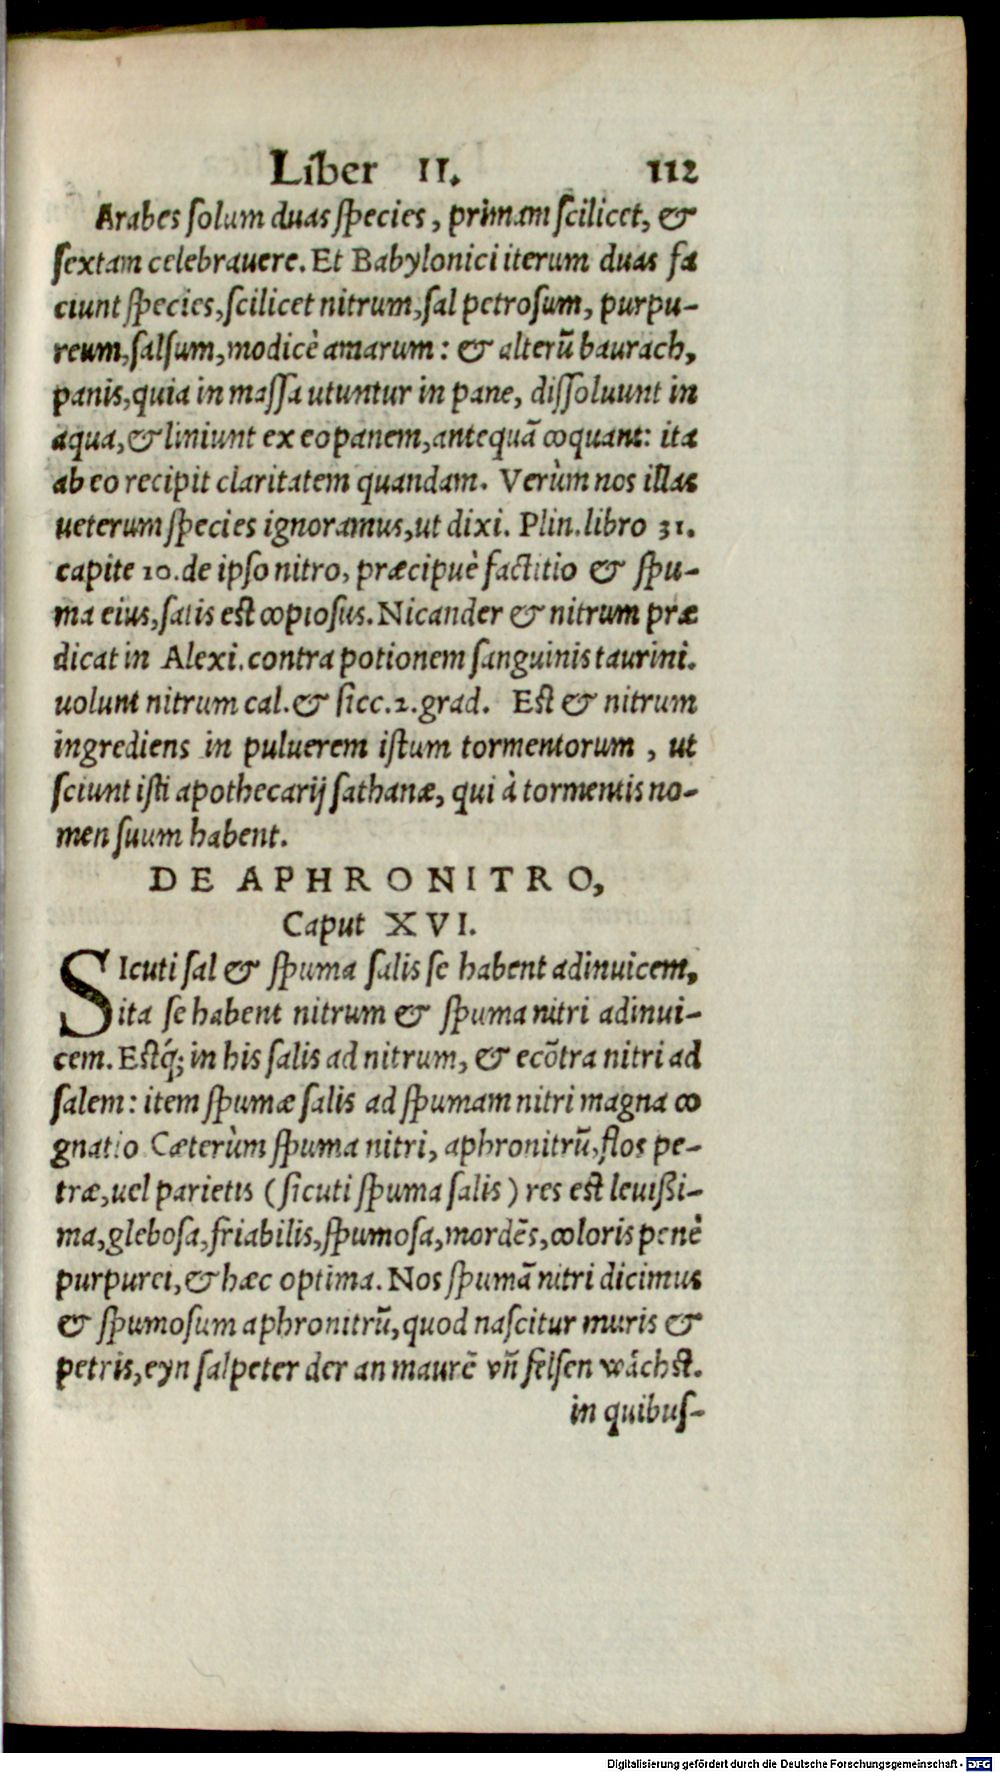 Liber II. 112
Arabes ſolum duas ſpecies, primam ſcilicet, &
ſextam celebrauere. Et Babylonici iterum duas fa
ciunt ſpecies, ſcilicet nitrum, ſal petroſum, purpu-
reum, ſalſum, modicè amarum: & alterũ baurach,
panis, quia in maſſa utuntur in pane, diſſoluunt in
aqua, & liniunt ex eo panem, antequã coquant: ita
ab eo recipit claritatem quandam. Verùm nos illas
ueterum ſpecies ignoramus, ut dixi. Plin. libro 31.
capite 10. de ipſo nitro, præcipuè factitio & ſpu-
ma eius, ſatis eſt copioſus. Nicander & nitrum præ
dicat in Alexi. contra potionem ſanguinis taurini.
uolunt nitrum cal. & ſicc. 2. grad. Eſt & nitrum
ingrediens in puluerem iſtum tormentorum, ut
ſciunt iſti apothecarij ſathanæ, qui à tormentis no-
men ſuum habent.
DE APHRONITRO,
Caput XVI.
SIcuti ſal & ſpuma ſalis ſe habent adinuicem,
ita ſe habent nitrum & ſpuma nitri adinui-
cem. Eſtq́; in his ſalis ad nitrum, & ecõtra nitri ad
ſalem: item ſpumæ ſalis ad ſpumam nitri magna co
gnatio Cæterùm ſpuma nitri, aphronitrũ, flos pe-
træ, uel parietis (ſicuti ſpuma ſalis) res eſt leuißi-
ma, gleboſa, friabilis, ſpumoſa, mordẽs, coloris penè
purpurei, & hæc optima. Nos ſpumã nitri dicimus
& ſpumoſum aphronitrũ, quod naſcitur muris &
petris, eyn ſalpeter der an maurẽ vñ felſen wåchſt.
in quibuſ-
Digitalisierung gefördert durch die Deutsche Forschungsgemeinschaft - DFG